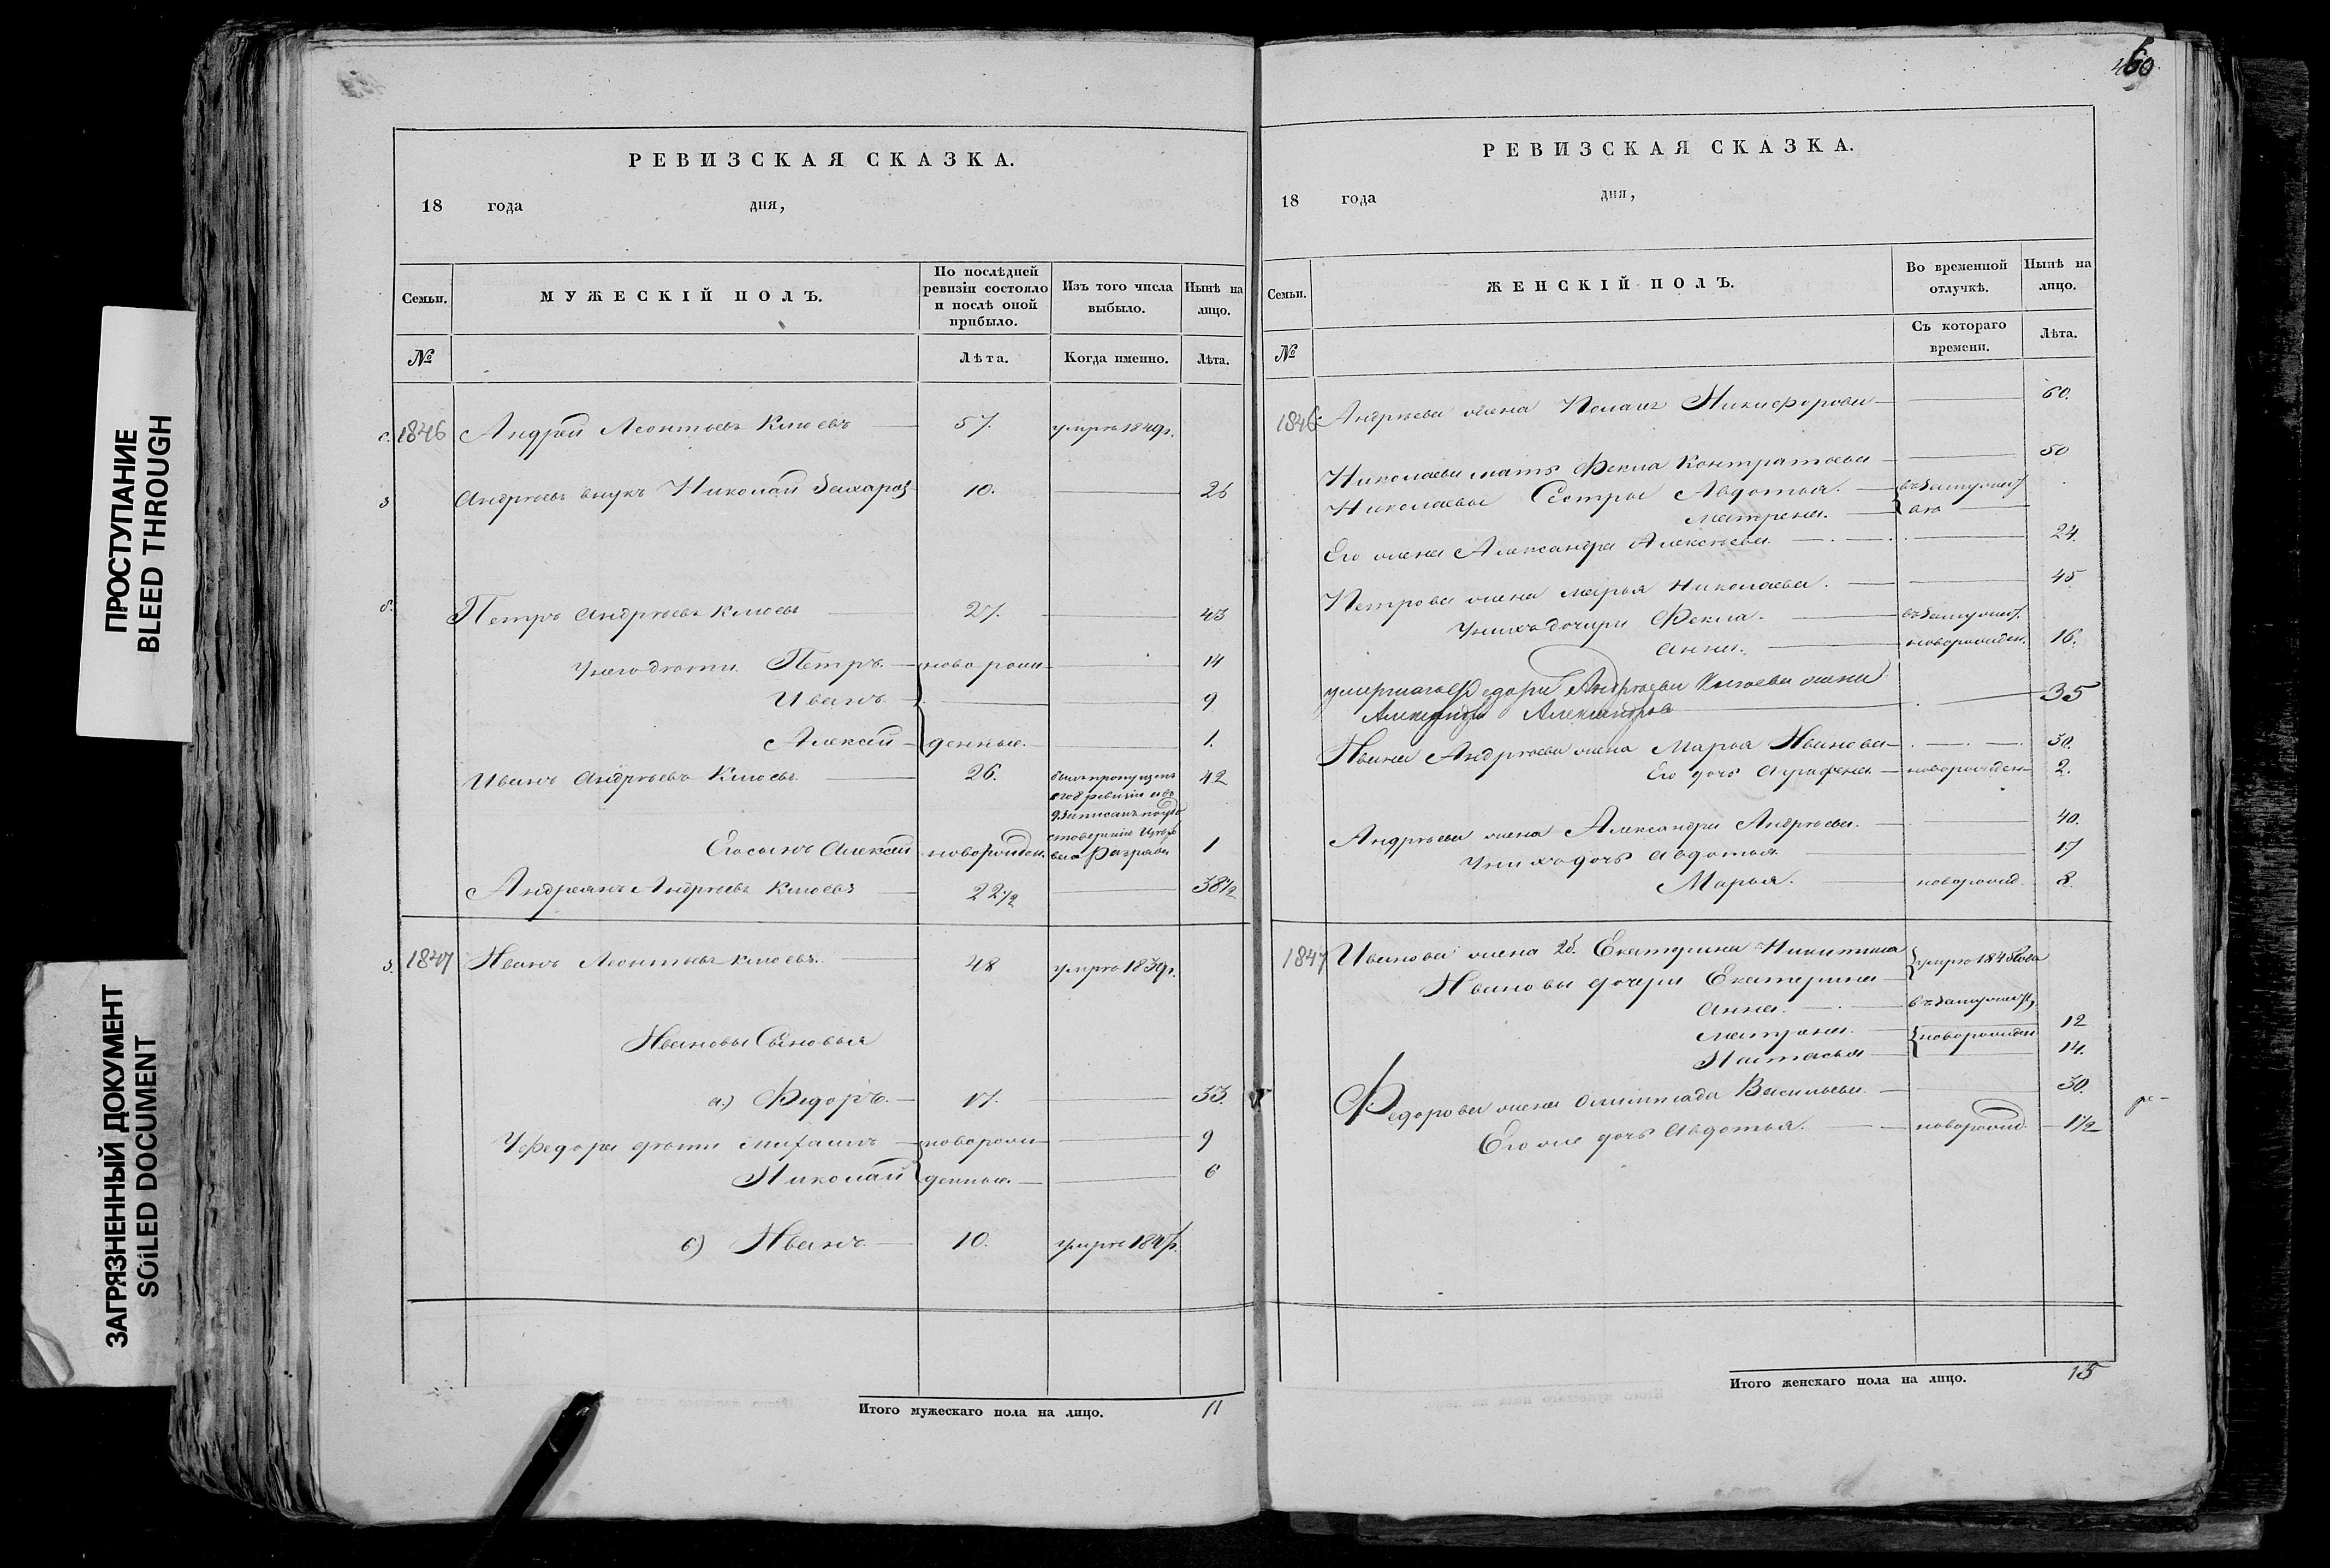 ПРОСТУПАНИЕ
BLEED THROUGH
ЗАГРЯЗНЕННЫЙ ДОКУМЕНТ
SOILED DOCUMENT
РЕВИЗСКАЯ СКАЗКА.
18 года дня,
Семьи. МУЖЕСКІЙ ПОЛЪ. По послѣдней ревизіи состояло и послѣ оной прибыло. Изъ того числа выбыло. Нынѣ на лицо.
№ Лѣта. Когда именно. Лѣта.
1846 Андрей Леонтьевъ Клюевъ 57. умре 1849г.
Андреевъ внукъ Николай Захаровъ 10. 26
Петръ Андреевъ Клюевъ 27. 43
У него дѣти Петръ. новорож 14
Иванъ 9
Алексей денные. 1.
Иванъ Андреевъ Клюевъ 26. былъ пропущенъ 42
Его сынъ Алексей новорожден. 1
Андреянъ Андреевъ Клюевъ 22 1/2 38 1/2
1847 Иванъ Леонтьевъ Клюевъ. 48 умре 1839г.
Ивановы Сыновья
а.) Федоръ. 17. 33.
У Федора дѣти Михаилъ новорож 9
Николай денные. 6
б) Иванъ 10. умре 184
Итого мужескаго пола на лицо. 11
60
РЕВИЗСКАЯ СКАЗКА.
18 года дня,
Семьи. ЖЕНСКІЙ ПОЛЪ. Во временной отлучкѣ. Нынѣ на лицо.
№ Съ котораго времени. Лѣта.
1846 Андреева жена Никифорова 60.
Николаева мать Фекла Контратьева 50
Николаевы Сестры Авдотья. въ замужест
Матрена.
Его жена Александра Алексеева 24.
Петрова жена Марья Николаева. 45
У нихъ дочери Фекла. въ замужест.
Анна. новорожден. 16.
умершаго Федора Андреева Клюева жена
Александра 35
Ивана Андреева жена Марья Иванова 30.
Его дочь Аграфена новорожден 2.
Андреева жена Александра Андреева. 40.
У нихъ дочь Авдотья 17
Марья. новорожд. 8.
1847 Иванова жена 2б. Екатерина Никитина умре 1848
Ивановы дочери Екатерина
Анна. въ замужест
Матрена. новорожден 12
Настасья 14.
Федорова жена Олимпиада Васильева 30.
Его же дочь Авдотья. новорожд. 1 1/2
Итого женскаго пола на лицо. 15